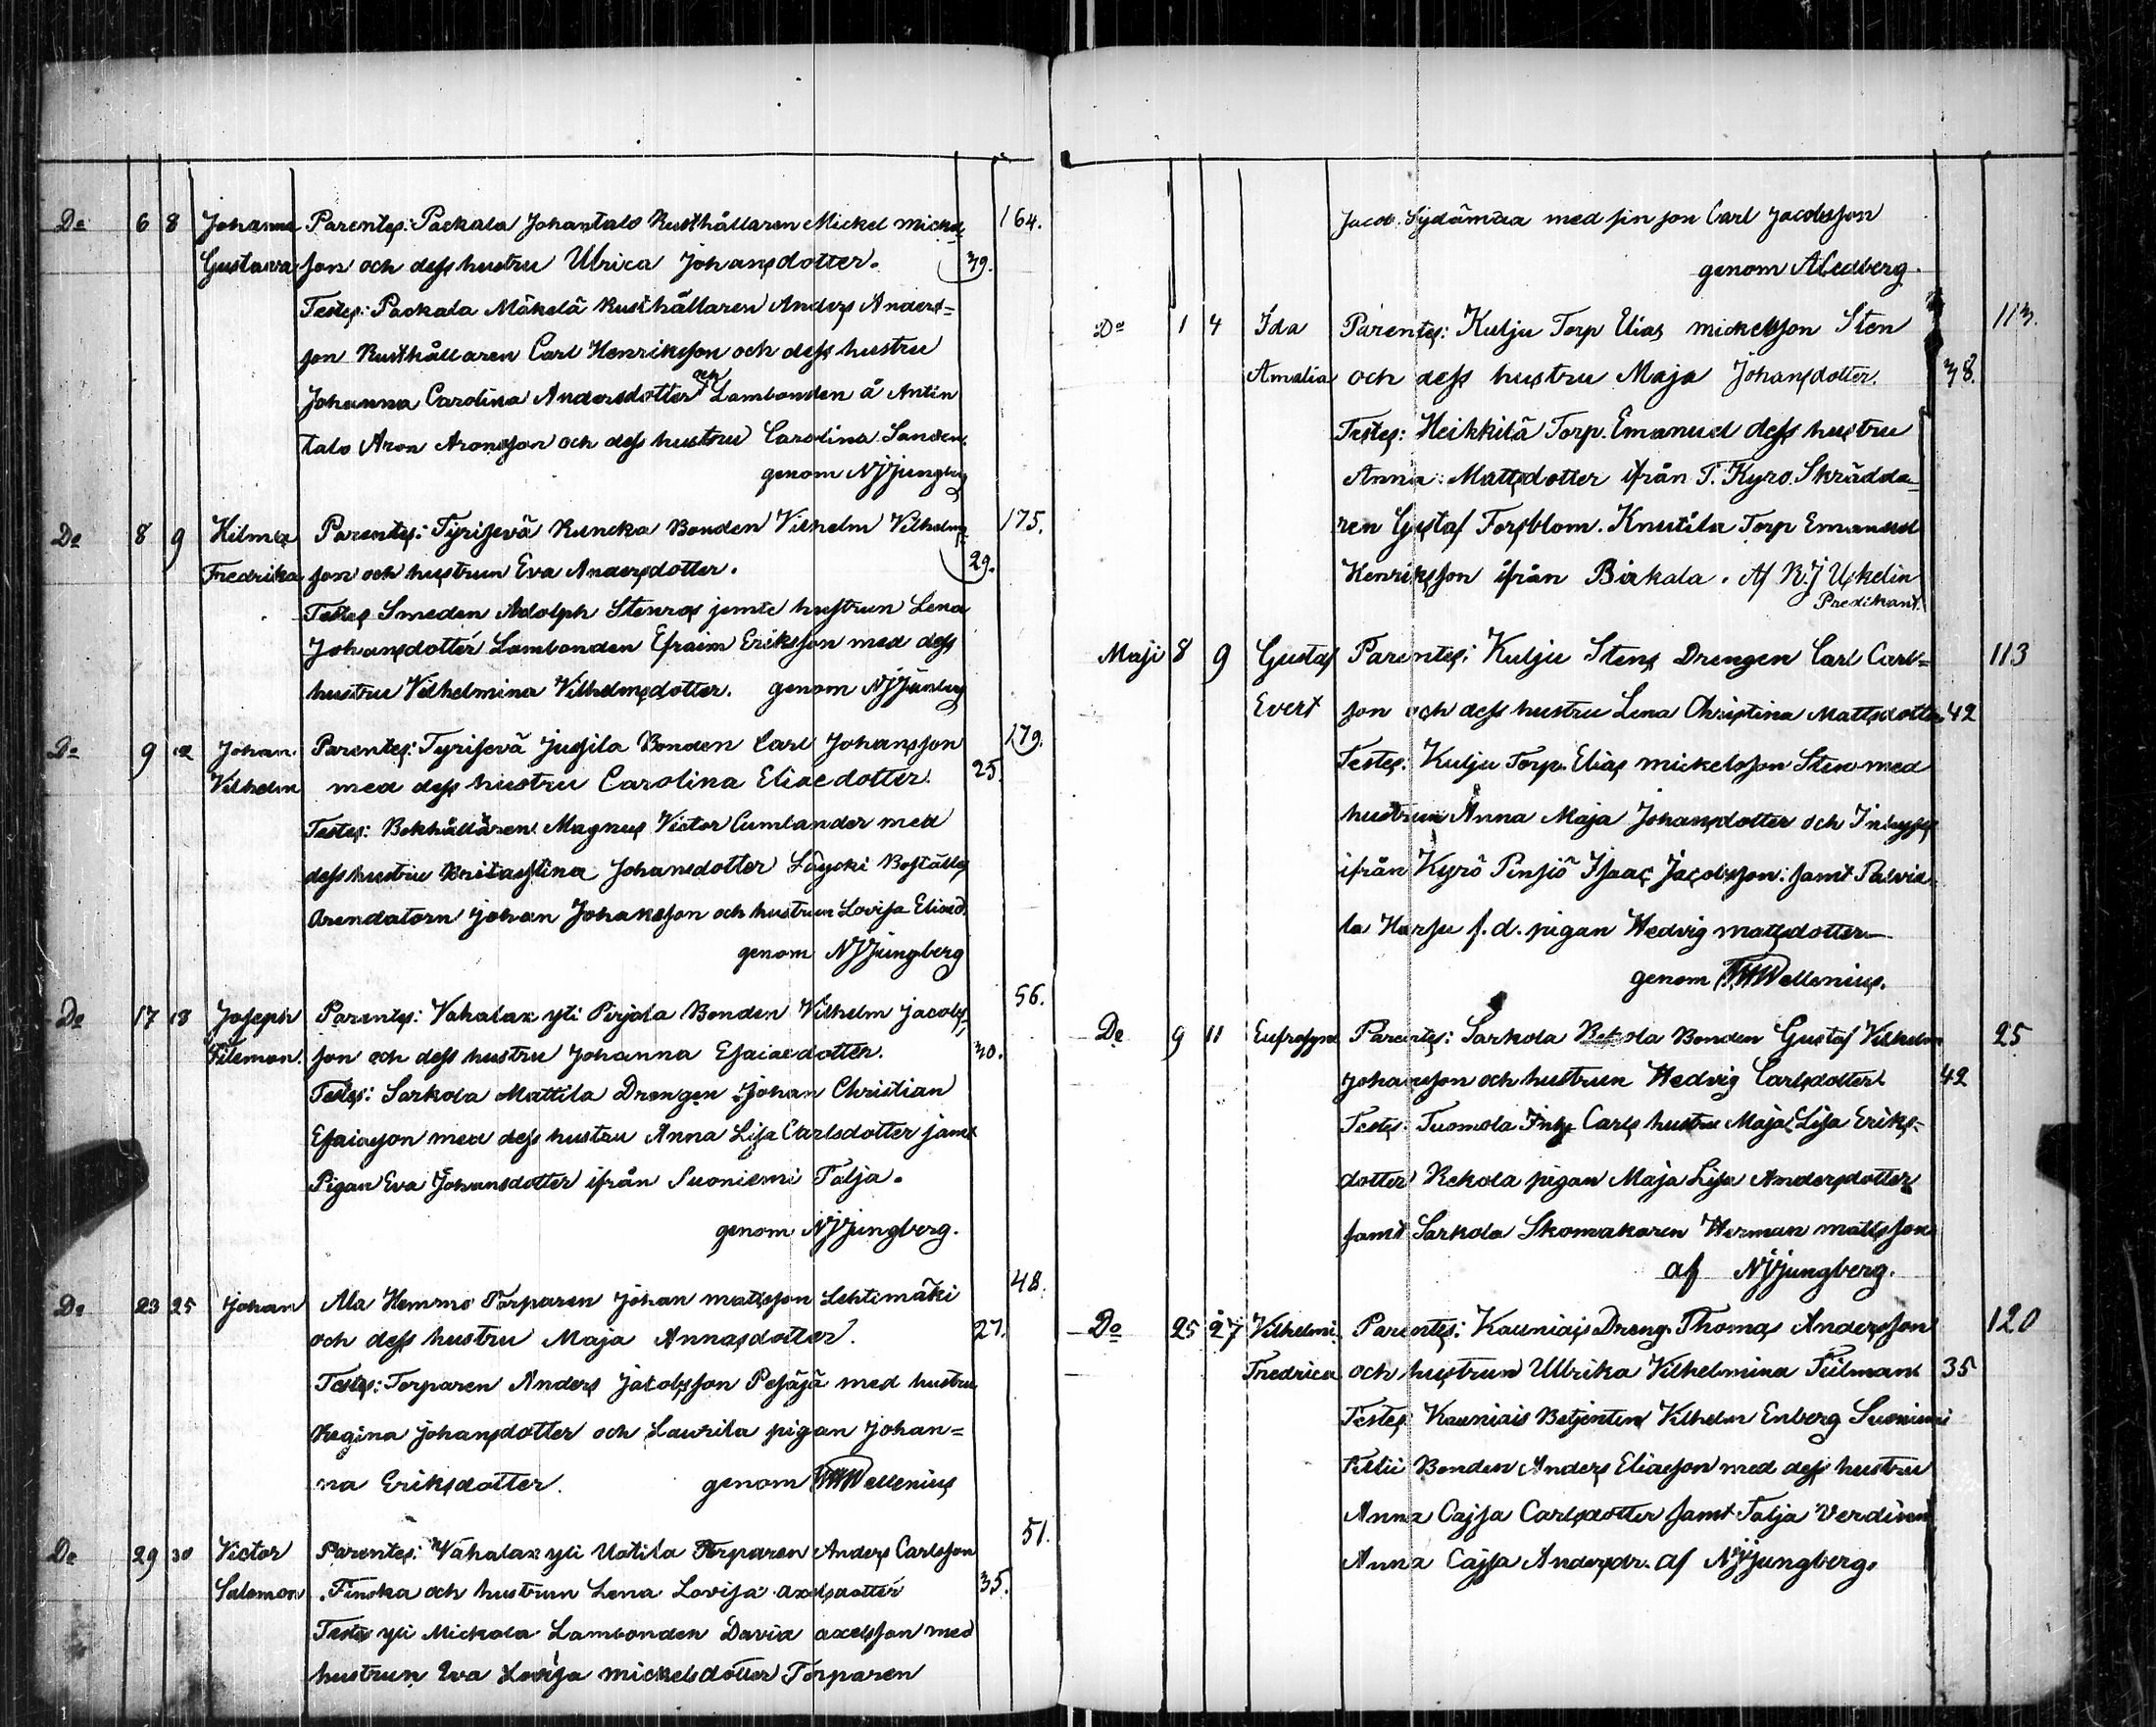 Do 6 8 Johanna Parentes: Packala Johantalo Rusthållaren Mickel Mickel= 164.
Gustava son och dess hustru Ulrica Johansdotter. 39.
Testes: Packala Mäkelä Rusthållaren Anders Anders=
son Rusthållaren Carl Henriksson och dess hustru
Johanna Carolina Andersdotter och Lambonden å Antin
talo Aron Aronsson och dess hustru Carolina
genom NJJungberg
Do 8 9 Hilma Parentes: Tyrisevä Runcka Bonden Vilhelm Vilhelms= 175.
Fredrika son och hustrun Eva Andersdotter. 29.
Testes Smeden Adolph Stenros jemte hustrun Lena
Johansdotter Lambonden Efraim Eriksson med dess
hustru Vilhelmina Vilhelmsdotter. genom NJJungberg
Do 9 12 Johan Parentes: Tyrisevä Jussila Bonden Carl Johansson 179.
Vilhelm med dess hustru Carolina Eliaedotter. 25.
Testes: Bokhållaren Magnus Victor Cumlander med
dess hustru Britastina Johansdotter Laycki Boställs
Arendatorn Johan Johansson och hustrun Lovisa Eliaed.
genom NJJungberg
Do 17 18 Joseph Parentes: Vahalax yli Pirjola Bonden Vilhelm Jacobs 56.
Filemon. son och dess hustru Johanna Esaiaedotter. 30.
Testes: Sarkola Mattila Drengen Johan Christian
Esaiason med dess hustru Anna Lisa Carlsdotter jämt
Pigan Eva Johansdotter ifrån Suoniemi Talja.
genom NJJungberg.
Do 23 25 Johan Ala Hemmo Torparen Johan Matsson Lehtimäki 48.
och dess hustru Maja Annasdotter. 27.
Testes: Torparen Anders Jakobsson Pesäjä med hustru
Regina Johansdotter och Laurila pigan Johan=
na Eriksdotter. genom Wellenius
Do 29 30 Victor Parentes: Vahalax yli Uotila Torparen Anders Carlsson 51.
Salomon Finska och hustrun Lena Lovisa Axelsdotter 35.
Testes yli Mickola Lambonden David Axelsson med
hustrun Eva Lovisa Mickelsdotter Torparen
Jacob Sydämaa med sin son Carl Jacobsson
genom ACedberg.
Do 1 4 Ida Parentes: Kulju Torp Elias Mickelsson Sten 113.
Amalia och dess hustru Maja Johansdotter. 38.
Testes: Heikkilä Torp. Emanuel dess hustru
Anna: Mattsdotter ifrån T. Kyro. Skrädda=
ren Gustaf Forsblom. Knutila Torp Emanuel
Henriksson ifrån Birkala. Af R.J Uskelin
Predikant.
Maji 8 9 Gustaf Parentes: Kulju Stens Drengen Carl Carl= 113
Evert son och dess hustru Lena Christina Mattsdotter 42
Testes: Kulju Torp. Elias Mickelsson Sten med
hustrun Anna Maja Johansdotter och Inhyses
ifrån Kyrö Pinsiö Isaac Jacobsson. samt Palvia
la Harju f.d. pigan Hedvig Mattsdotter
genom Wellenius.
Do 9 11 Eufrosyne Parentes: Sarkola Bonden Gustaf Vilhelm 25
Johansson och hustrun Hedvig Carlsdotter 42
Testes: Tuomola Inh. Carls hustru Maja Lisa Eriks=
dotter Rekola pigan Maja Lisa Andersdotter
samt Sarkola Skomakaren Herman Mattsson
af NJJungberg.
Do 25 27 Vilhelmi. Parentes: Kauniais Dreng Thomas Andersson 120
Fredrica och hustrun Ullrika Vilhelmina Tilman 35
Testes: Kauniais Betjenten Vilhelm Enberg Suoniemi
Bonden Anders Eliaeson med dess hustru
Anna Cajsa Carlsdotter samt Talja
Anna Cajsa Andersdr. af NJJungberg.